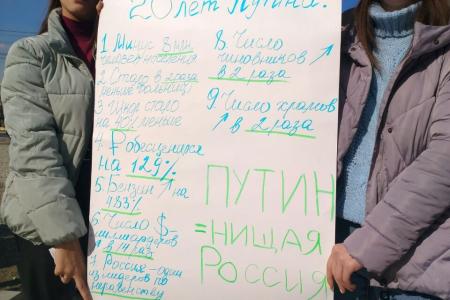 20 лет Путина:
1 Минус 8 млн.
населения
2 Стало в 2 раза
меньше больниц
3 Школ стало
на 40% меньше
4 ₽ обесценился
на 129%
5 Бензин ↗ на
483%
6 Число $-
миллиардеров
в 14 раз
7 Россия - один
из лидеров по
неравенству
8. Число
чиновников ↗
в 2 раза
9. Число храмов
↑ в 2 раза
ПУТИН
= НИЩАЯ
РОССИЯ